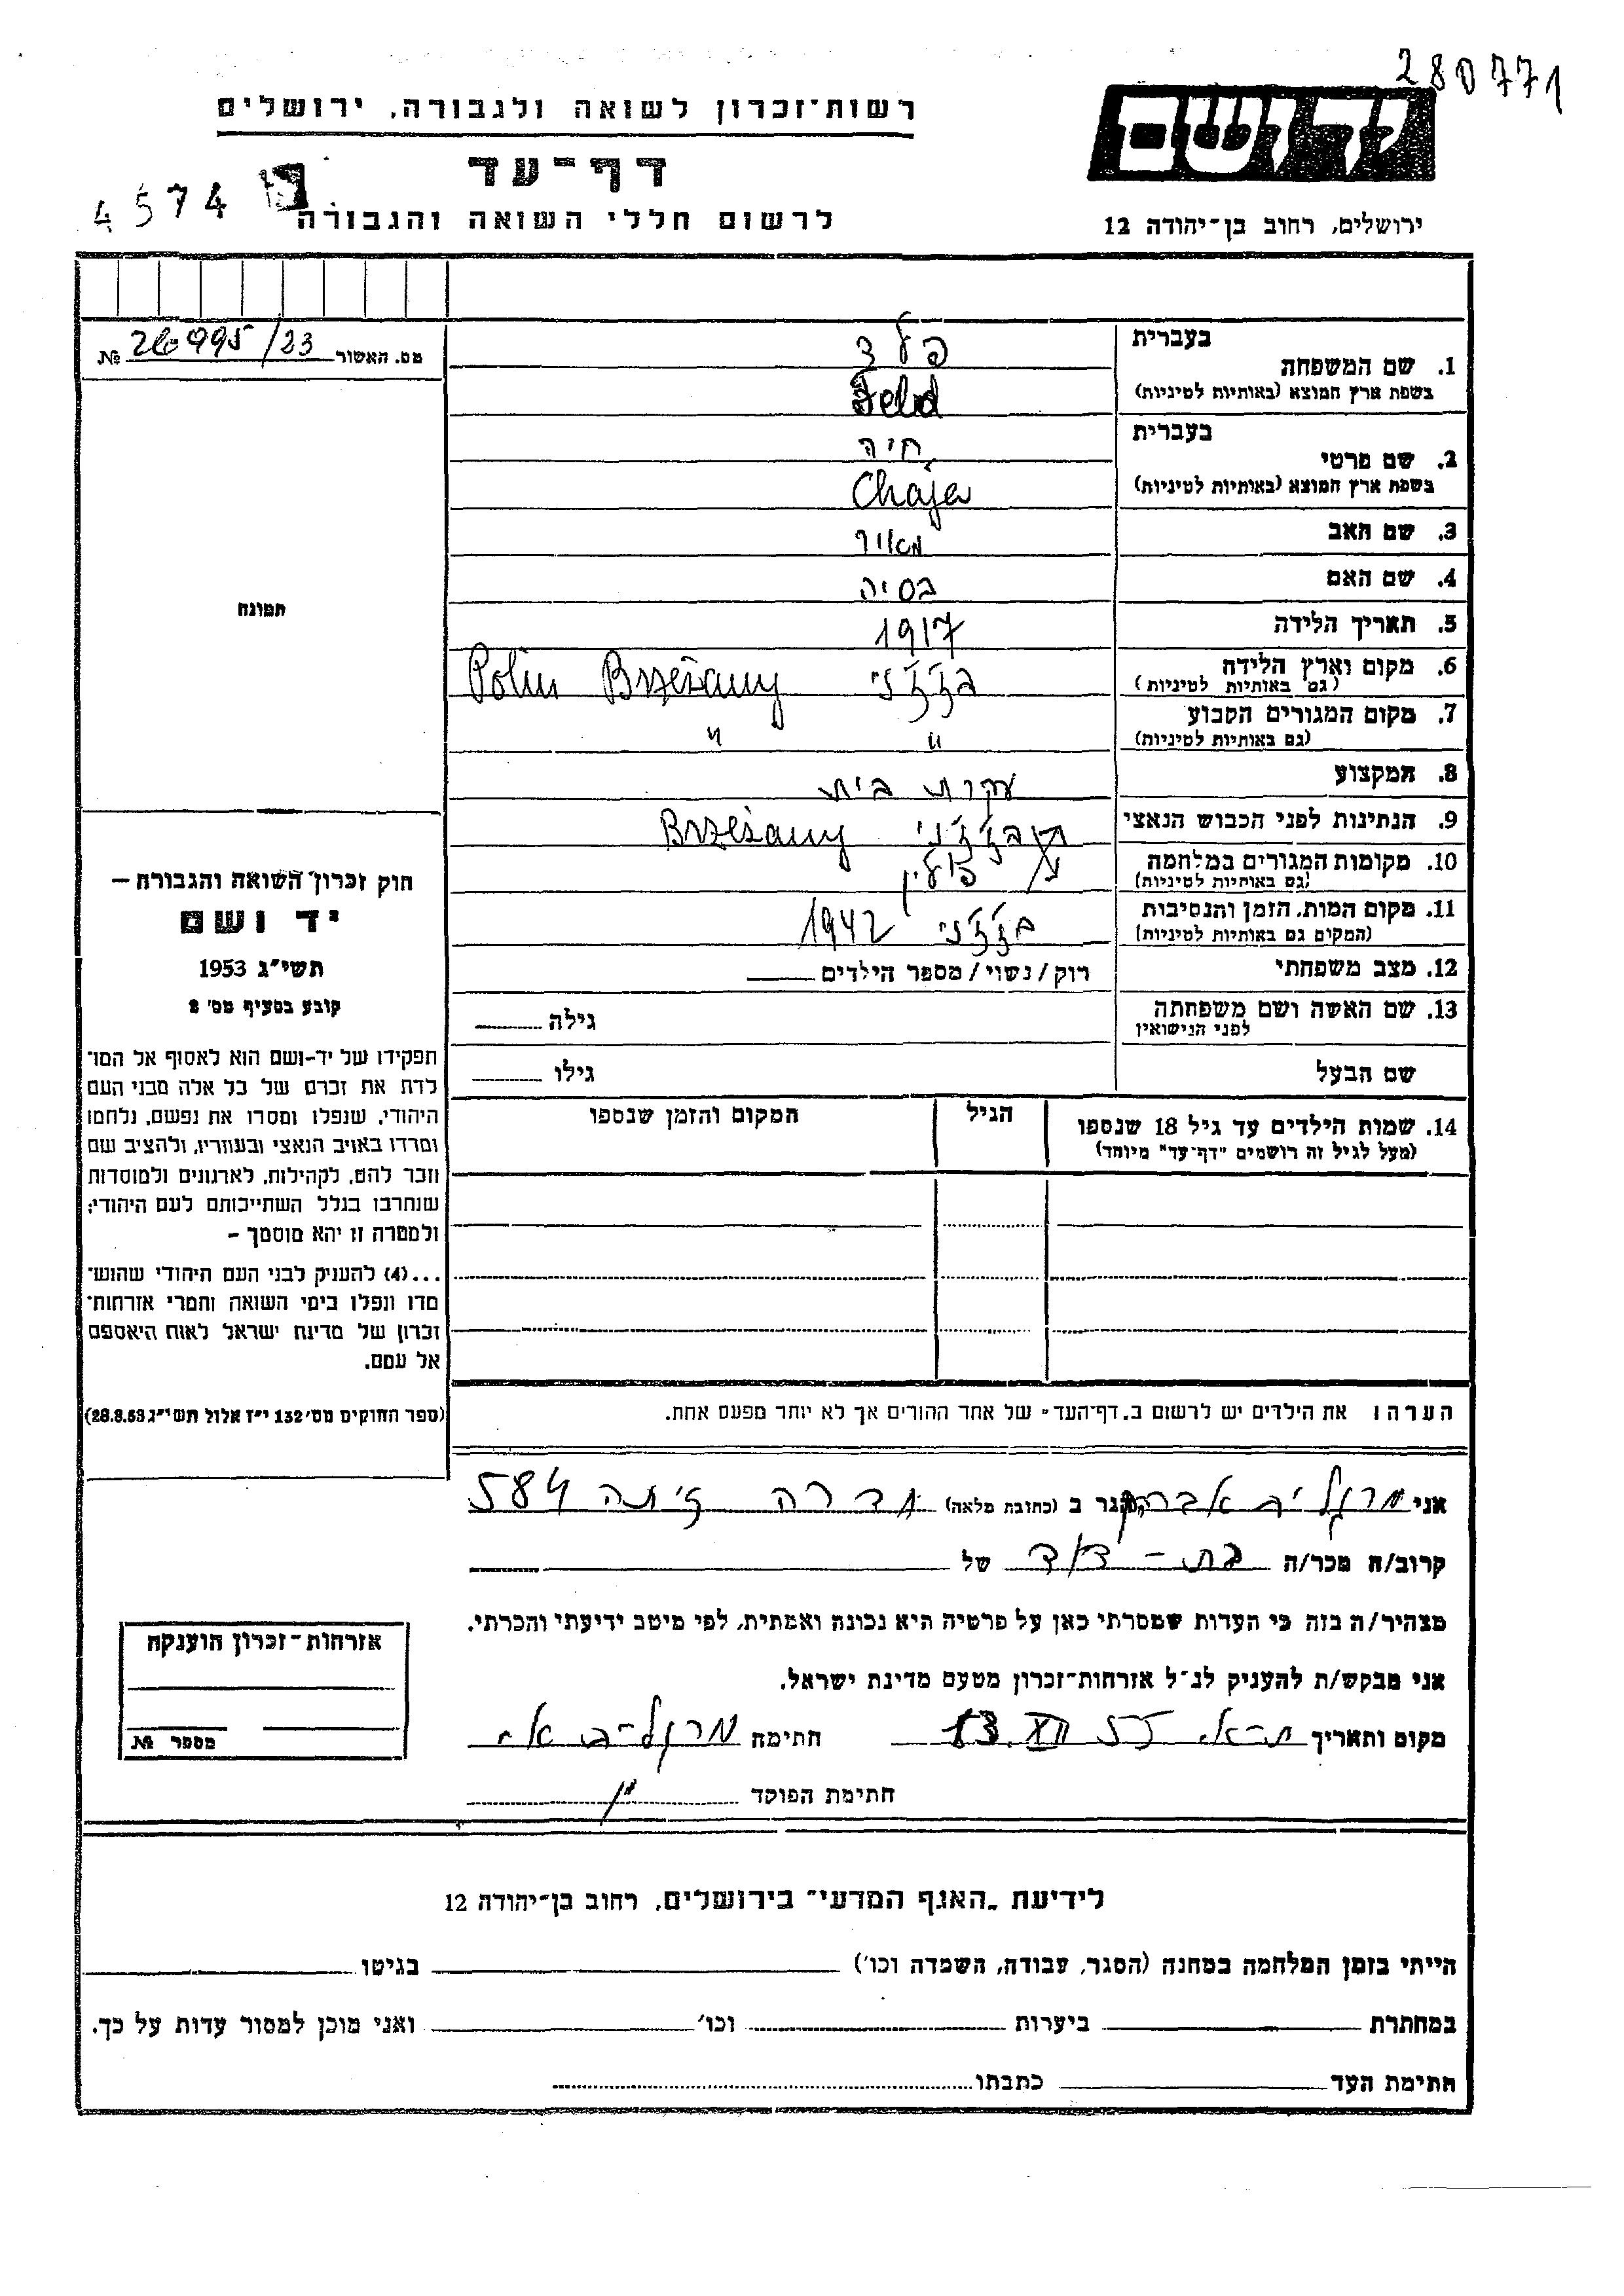 280771
רשות־זכרון לשואה ולגבורה, ירושלים
יד ושם
דף־עד
4574
לרשום חללי השואה והגבורה
ירושלים, רחוב בן־יהודה 12
מס. האשור № 26995/23
תמונה
1. שם המשפחה בעברית פלד
בשפת ארץ המוצא (באותיות לטיניות) Feld
2. שם פרטי בעברית חיה
בשפת ארץ המוצא (באותיות לטיניות) Chaja
3. שם האב מאיר
4. שם האם בסיה
5. תאריך הלידה 1917
6. מקום וארץ הלידה (גם באותיות לטיניות) ברז'ז'ני Brzeżany Polin
7. מקום המגורים הקבוע (גם באותיות לטיניות) " "
8. המקצוע עקרת בית
9. הנתינות לפני הכבוש הנאצי ברז'ז'ני Brzeżany
10. מקומות המגורים במלחמה (גם באותיות לטיניות) פולין
11. מקום המות, הזמן והנסיבות (המקום גם באותיות לטיניות) ברז'ז'ני 1942
12. מצב משפחתי רוק / נשוי / מספר הילדים
13. שם האשה ושם משפחתה לפני הנישואין גילה
שם הבעל גילו
14. שמות הילדים עד גיל 18 שנספו הגיל המקום והזמן שנספו
(מעל לגיל זה רושמים "דף־עד" מיוחד)
חוק זכרון השואה והגבורה —
יד ושם
תשי"ג 1953
קובע בסעיף מס' 2
תפקידו של יד-ושם הוא לאסוף אל המו־
לדת את זכרם של כל אלה מבני העם
היהודי, שנפלו ומסרו את נפשם, נלחמו
ומרדו באויב הנאצי ובעוזריו, ולהציב שם
וזכר להם, לקהילות, לארגונים ולמוסדות
שנחרבו בגלל השתייכותם לעם היהודי;
ולמטרה זו יהא מוסמך -
...(4) להעניק לבני העם היהודי שהוש־
מדו ונפלו בימי השואה והמרי אזרחות־
זכרון של מדינת ישראל לאות היאספם
אל עמם.
(ספר החוקים מס' 132 י"ז אלול תשי"ג 28.8.53)
הערה: את הילדים יש לרשום ב„דף־העד" של אחד ההורים אך לא יותר מפעם אחת.
אני הגר ב (כתובת מלאה) 584
קרוב/ה מכר/ה בת-דוד של
מצהיר/ה בזה כי העדות שמסרתי כאן על פרטיה היא נכונה ואמתית, לפי מיטב ידיעתי והכרתי.
אני מבקש/ת להעניק לנ"ל אזרחות־זכרון מטעם מדינת ישראל.
מקום ותאריך ת-א. 13.XII 55 חתימה
חתימת הפוקד
אזרחות־זכרון הוענקה
מספר №
לידיעת „האגף המדעי" בירושלים, רחוב בן־יהודה 12
הייתי בזמן המלחמה במחנה (הסגר, עבודה, השמדה וכו') בגיטו
במחתרת ביערות וכו' ואני מוכן למסור עדות על כך.
חתימת העד כתבתו